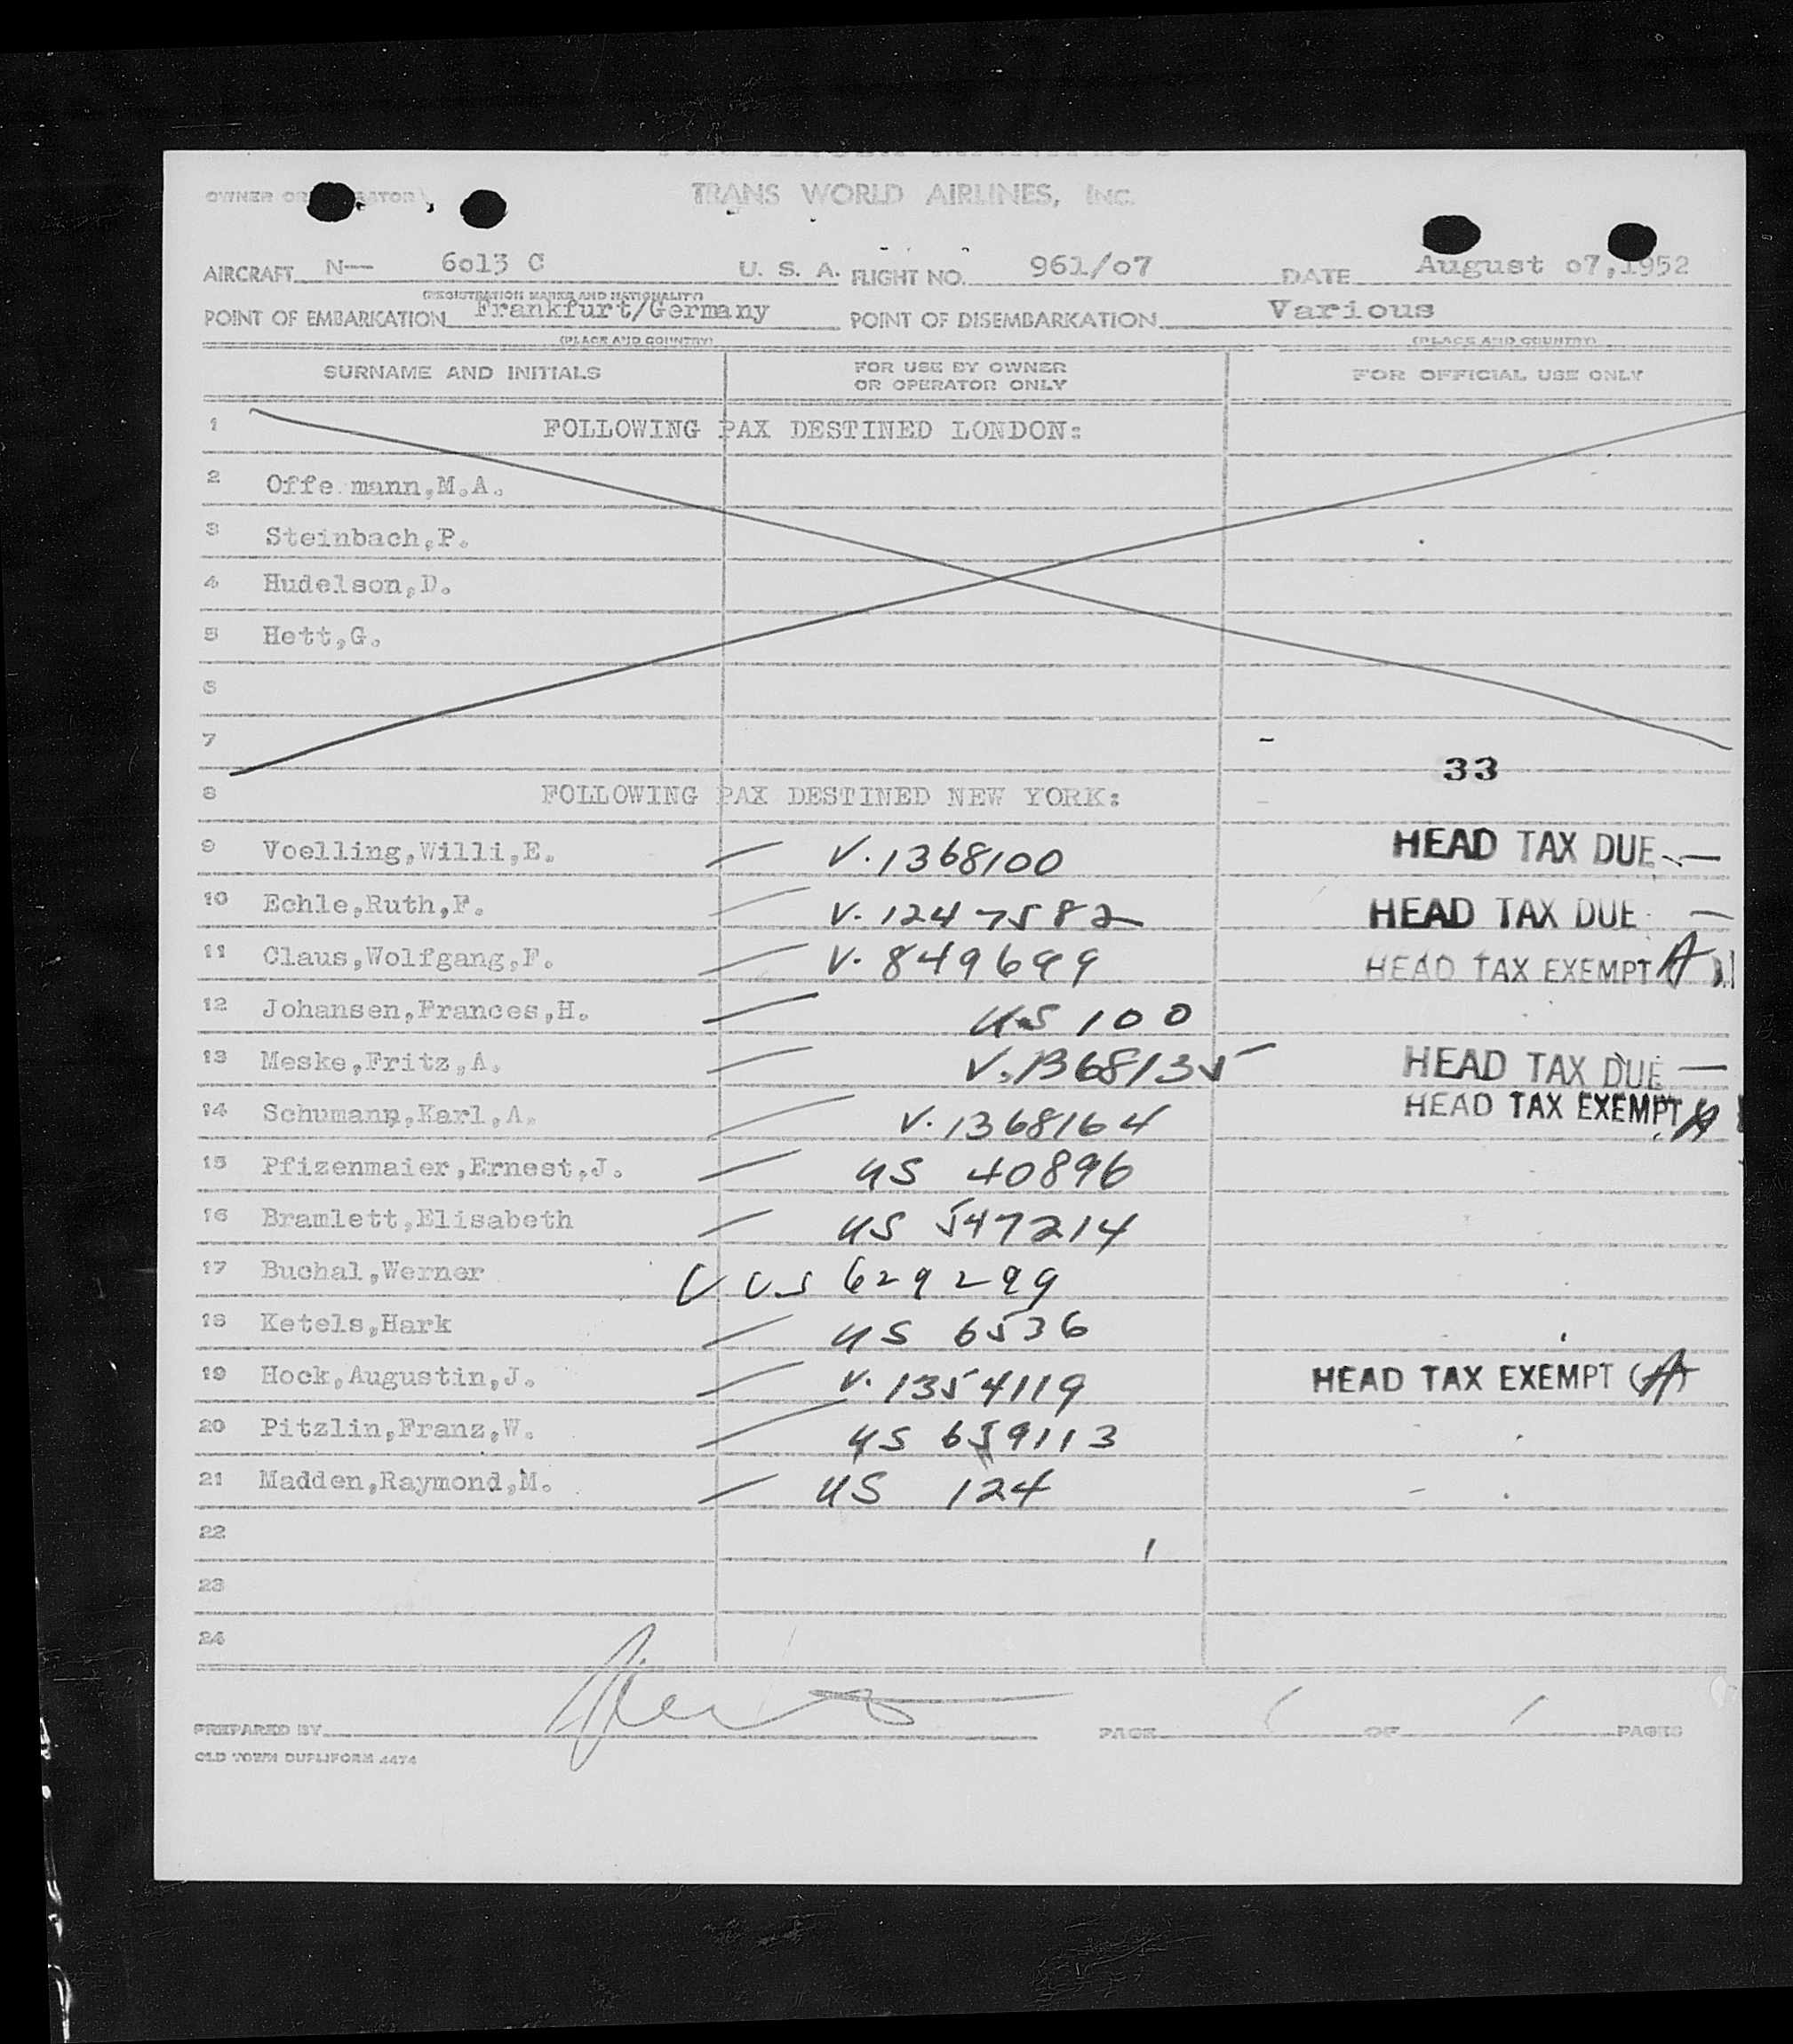 OWNER OR OPERATOR
TRANS WORLD AIRLINES, INC.
AIRCRAFT N-- 6013 C U. S. A. FLIGHT NO. 961/07 DATE August 07,1952
(REGISTRATION MARKS AND NATIONALITY)
POINT OF EMBARKATION Frankfurt/Germany POINT OF DISEMBARKATION Various
(PLACE AND COUNTRY) (PLACE AND COUNTRY)
SURNAME AND INITIALS FOR USE BY OWNER OR OPERATOR ONLY FOR OFFICIAL USE ONLY
1 FOLLOWING PAX DESTINED LONDON:
2 Offe mann,M.A.
3 Steinbach,P.
4 Hudelson,D.
5 Hett,G.
6
7
33
8 FOLLOWING PAX DESTINED NEW YORK:
9 Voelling,Willi,E. V. 1368100 HEAD TAX DUE
10 Echle,Ruth,F. V. 1247582 HEAD TAX DUE
11 Claus,Wolfgang,F. V. 849699 HEAD TAX EXEMPT (A)
12 Johansen,Frances,H. US 100
13 Meske,Fritz,A. V. 1368135 HEAD TAX DUE
14 Schumann,Karl,A. V. 1368164 HEAD TAX EXEMPT A
15 Pfizenmaier,Ernest,J. US 40896
16 Bramlett,Elisabeth US 547214
17 Buchal,Werner US 629299
18 Ketels,Hark US 6536
19 Hock,Augustin,J. V. 1354119 HEAD TAX EXEMPT (A)
20 Pitzlin,Franz,W. US 659113
21 Madden,Raymond,M. US 124
22
23
24
PREPARED BY PAGE 1 OF 1 PAGES
OLD TOWN DUPLIFORM 4474